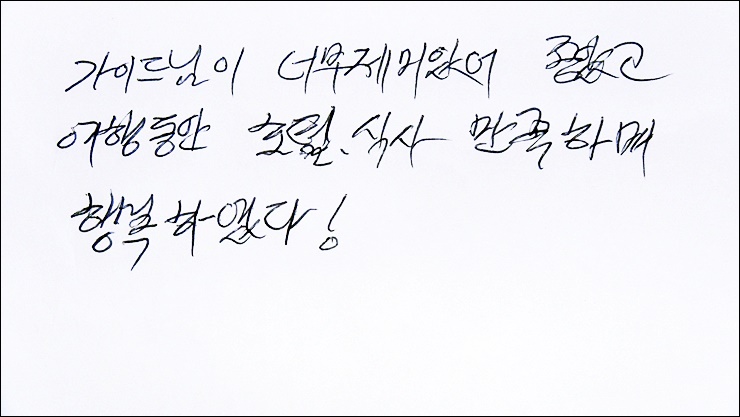 가이드님이 너무 제미있어 좋았고
여행동안 호텔.식사 만족하며
행복하였다!